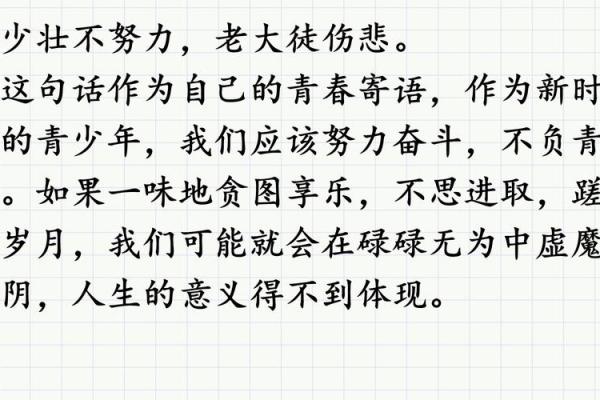 少壮不努力，老大徒伤悲。
这句话作为自己的青春寄语，作为新时
的青少年，我们应该努力奋斗，不负青
。如果一味地贪图享乐，不思进取，蹉
岁月，我们可能就会在碌碌无为中虚魔
阴，人生的意义得不到体现。